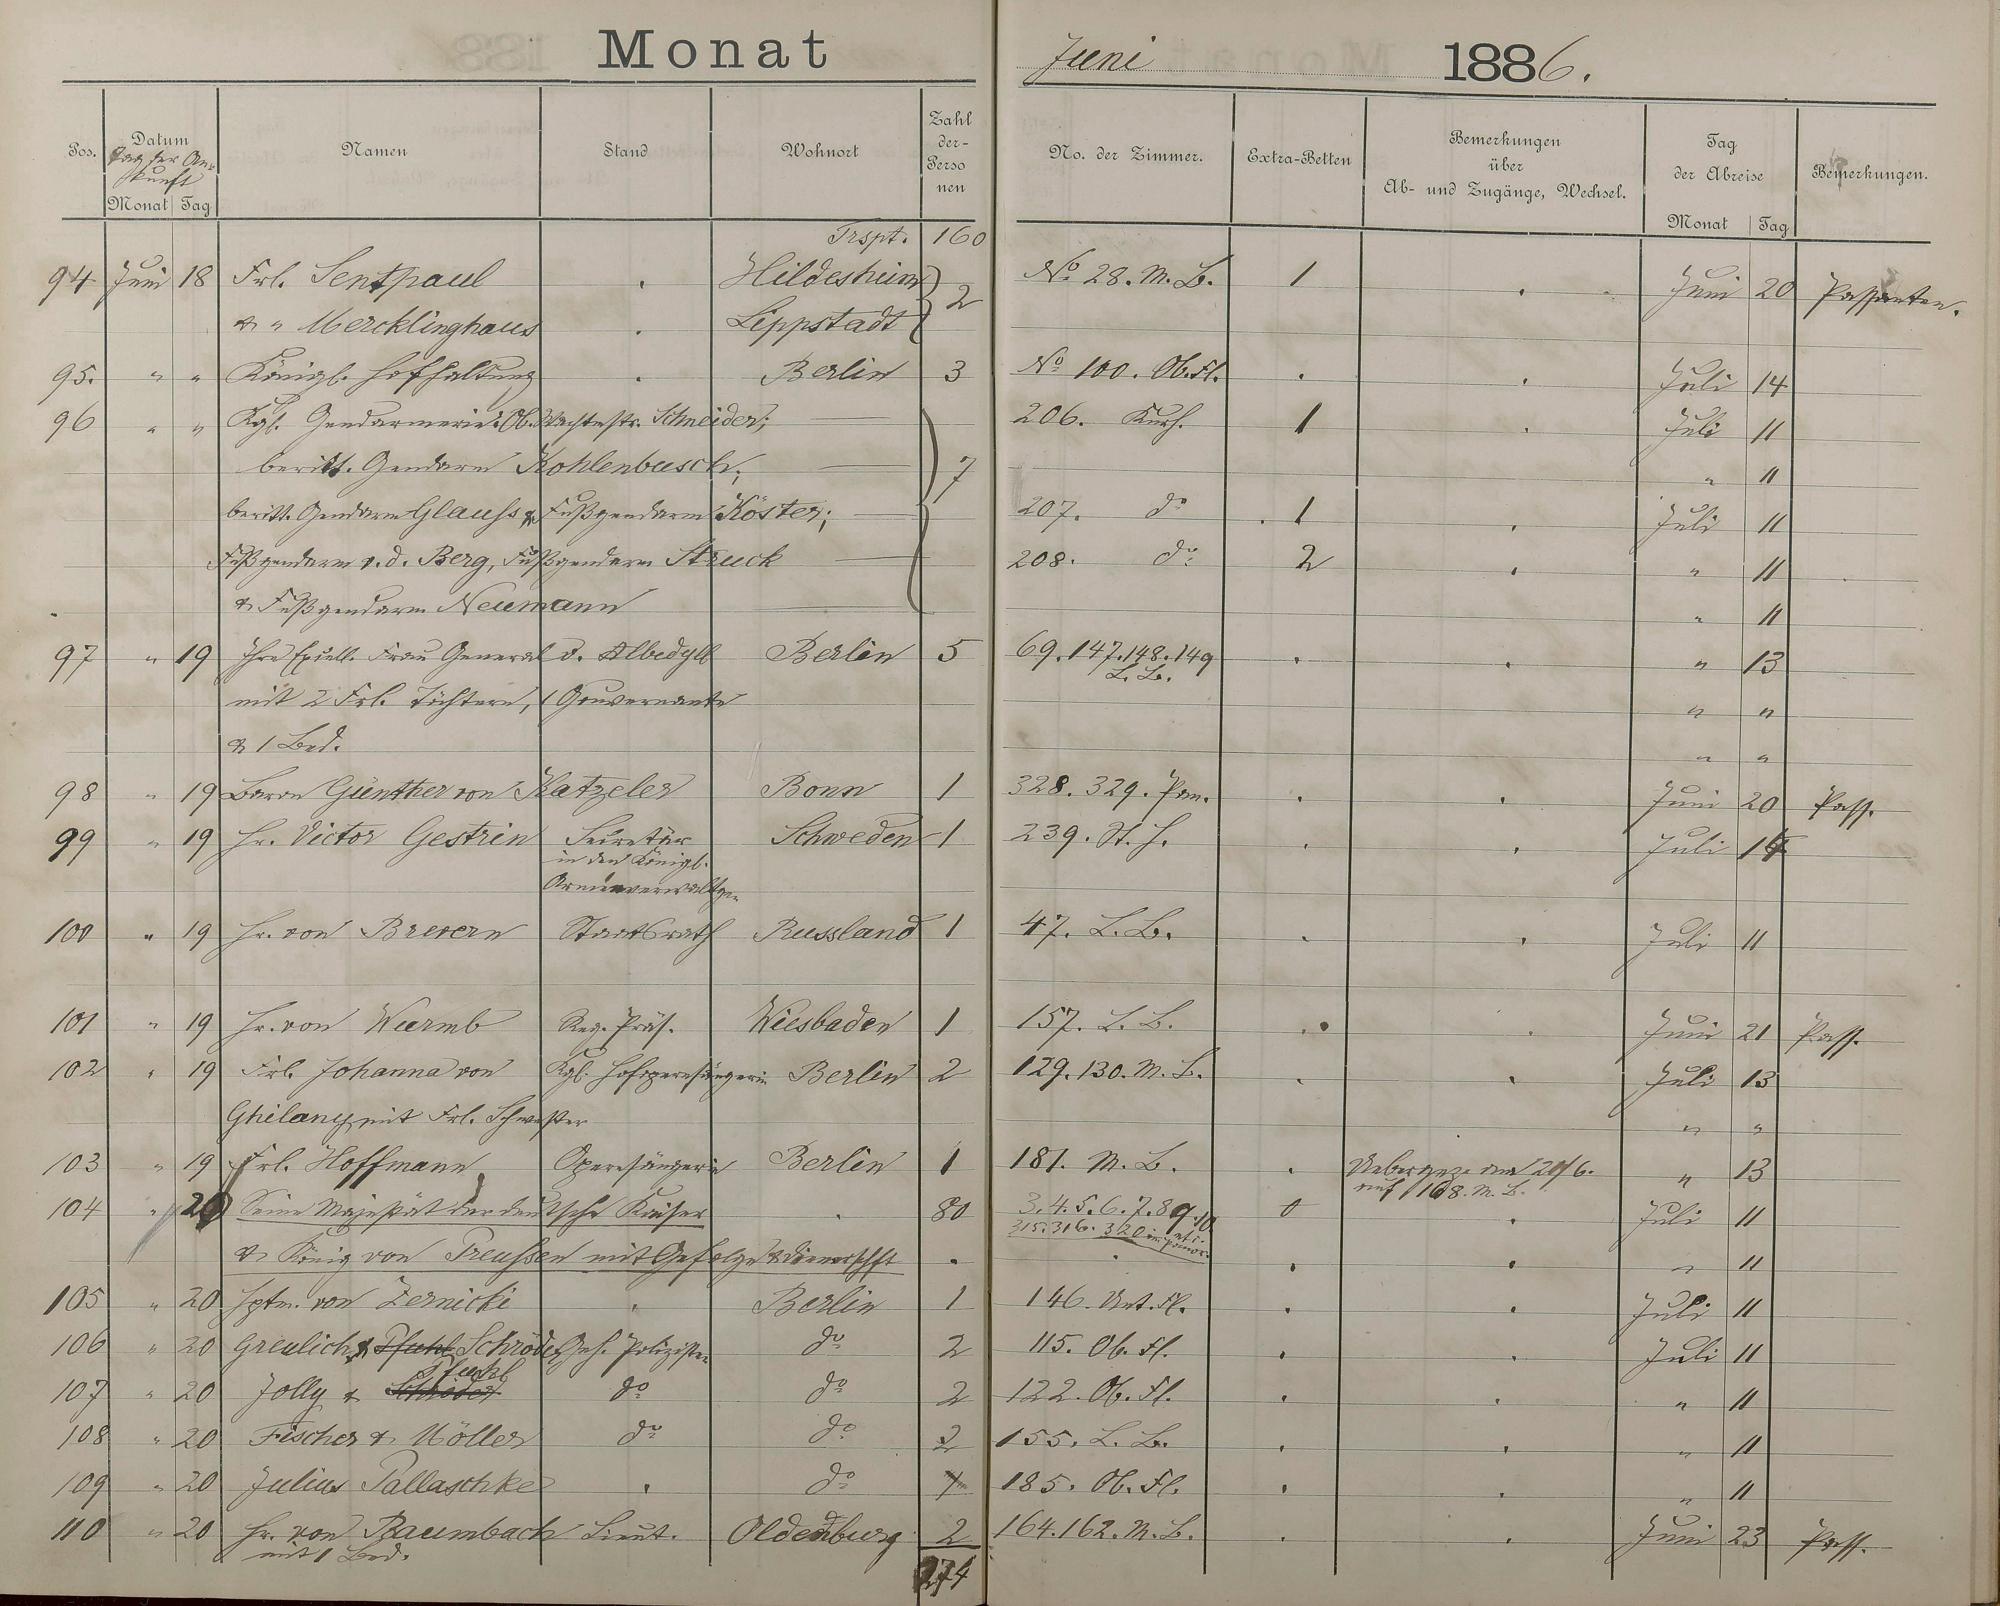 Monat Juni 1886.
Pos. Datum Namen Stand Wohnort Zahl der Personen No. der Zimmer. Extra-Betten Bemerkungen über Ab- und Zugänge, Wechsel. Tag der Abreise Bemerkungen.
Tag der Ankunft
Monat Tag Monat Tag
Trspt. 160
94 Juni 18 Frl. Sentpaul . Hildesheim 2 No 28. M. B. 1 . Juni 20 Passanten.
& " Mercklinghaus . Lippstadt
95. " " Königl. Hofhaltung . Berlin 3 No 100. Ob. Fl. . . Juli 14
96 " " Kgl. Gendarmerie-Ob. Wachtmstr. Schneider; 7 206. Kurh. 1 . Juli 11
beritt. Gendarm Kohlenbusch; " 11
beritt. Gendarm Glauss & Fußgendarm Köster; 207. do . 1 . Juli 11
Fußgendarm v. d. Berg, Fußgendarm Struck 208. do 2 . " 11
& Fußgendarm Neumann " 11
97 " 19 Ihre Excell. Frau General v. Albedyll Berlin 5 69. 147. 148. 149 . . " 13
L. B.
mit 2 Frl. Töchtern, 1 Gouvernante " "
& 1 Bed. " "
98 " 19 Baron Günther von Katzeler Bonn 1 328. 329. Pan. . . Juni 20 Pass.
99 " 19 Hr. Victor Gestrin Secretär Schweden 1 239. St. H. . . Juli 14
in der Königl.
Armeeverwaltgn.
100 " 19 Hr. von Brevern Staatsrath Russland 1 47. L. B. . . Juli 11
101 " 19 Hr. von Wurmb Reg. Präs. Wiesbaden 1 157. L. B. . . Juni 21 Pass.
102 " 19 Frl. Johanna von Kgl. Hofopernsängerin Berlin 2 129. 130. M. B. . . Juli 13
Ghilany mit Frl. Schwester " "
103 " 19 Frl. Hoffmann Opernsängerin Berlin 1 181. M. B. . Uebergez. am 20/6. " 13
auf 168. M. B.
104 " 20 Seine Majestät der deutsche Kaiser . 80 3. 4. 5. 6. 7. 8 9. 10 0 . Juli 11
315. 316. 320 im panor. etc.
& König von Preussen mit Gefolge & Dienerschft . . . " 11
105 " 20 Hptm. von Zernicki " Berlin 1 146. Unt. Fl. . . Juli 11
106 " 20 Greulich & Pfuhl Schröder Geh. Polizisten do 2 115. Ob. Fl. . . Juli 11
Pfuhl
107 " 20 Jolly & Schröder do do 2 122. Ob. Fl. . . " 11
108 " 20 Fischer & Möller do do 2 155. L. B. . . " 11
109 " 20 Julius Pallaschke . do 1 185. Ob. Fl. . . " 11
110 " 20 Hr. von Baumbach Lieut. Oldenburg 2 164. 162. M. B. . . Juni 23 Pass.
mit 1 Bed.
274